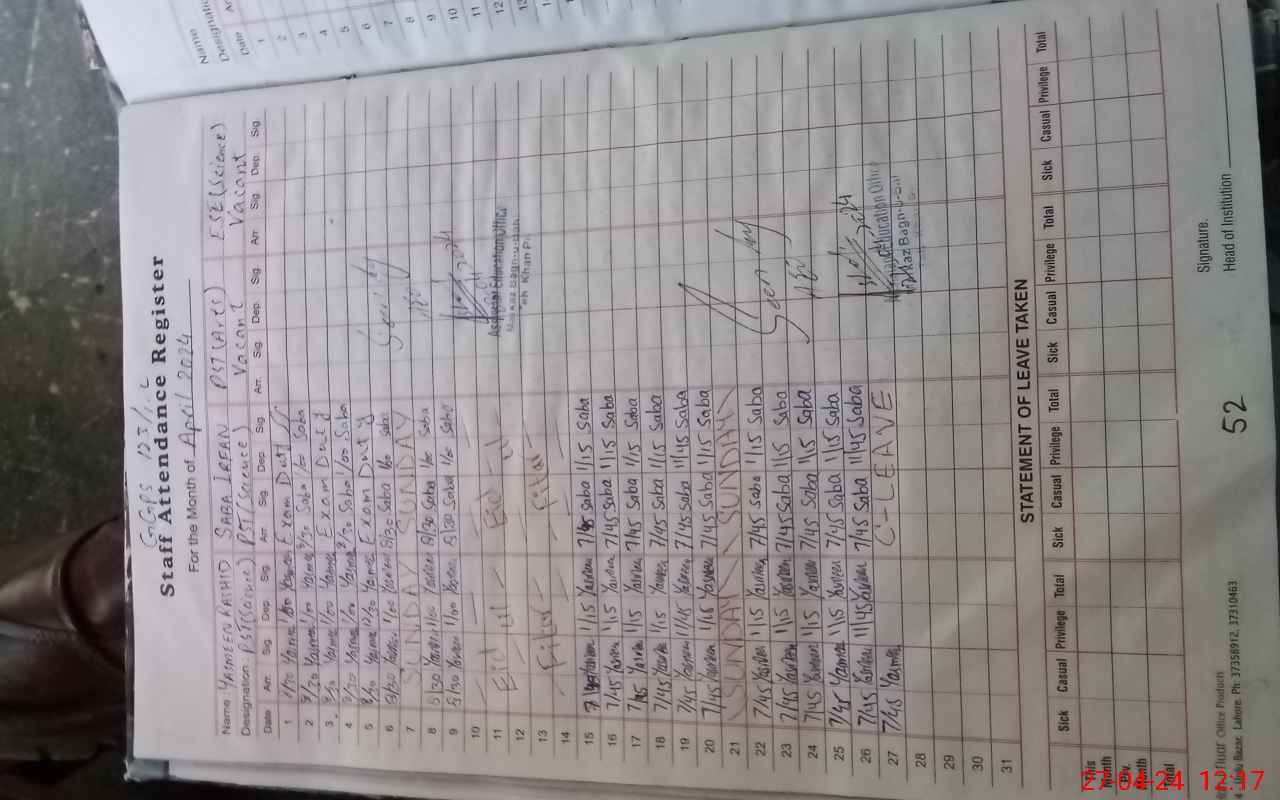 G.G.P.S 123/1.L
Staff Attendance Register
For the Month of April 2024
Name: YASMEEN RASHID SABA IRFAN PST (Arts) ESE (Science)
Designation PST (Science) PST (Science) Vacant Vacant
Date Arr. Sig. Dep. Sig. Arr. Sig. Dep. Sig. Arr. Sig. Dep. Sig. Arr. Sig. Dep. Sig.
1 8/30 Yasmeen 1/00 Yasmeen Exam Duty
2 8/30 Yasmeen 1/00 Yasmeen 8/30 Saba 1/00 Saba
3 8/30 Yasmeen 1/00 Yasmeen Exam Duty
4 8/30 Yasmeen 1/00 Yasmeen 8/30 Saba 1/00 Saba
5 8/30 Yasmeen 12/30 Yasmeen Exam Duty
6 8/30 Yasmeen 1/00 Yasmeen 8/30 Saba 1/00 Saba
7 SUNDAY SUNDAY
8 8/30 Yasmeen 1/00 Yasmeen 8/30 Saba 1/00 Saba
9 8/30 Yasmeen 1/00 Yasmeen 8/30 Saba 1/00 Saba
10
11 Eid ul Eid ul
12
13 Fitar Fitar
14
15 7/45 Yasmeen 1/15 Yasmeen 7/45 Saba 1/15 Saba
16 7/45 Yasmeen 1/15 Yasmeen 7/45 Saba 1/15 Saba
17 7/45 Yasmeen 1/15 Yasmeen 7/45 Saba 1/15 Saba
18 7/45 Yasmeen 1/15 Yasmeen 7/45 Saba 1/15 Saba
19 7/45 Yasmeen 11/45 Yasmeen 7/45 Saba 11/45 Saba
20 7/45 Yasmeen 1/15 Yasmeen 7/45 Saba 1/15 Saba
21 SUNDAY SUNDAY
22 7/45 Yasmeen 1/15 Yasmeen 7/45 Saba 1/15 Saba
23 7/45 Yasmeen 1/15 Yasmeen 7/45 Saba 1/15 Saba
24 7/45 Yasmeen 1/15 Yasmeen 7/45 Saba 1/15 Saba
25 7/45 Yasmeen 1/15 Yasmeen 7/45 Saba 1/15 Saba
26 7/45 Yasmeen 11/45 Yasmeen 7/45 Saba 11/45 Saba
27 7/45 Yasmeen C-LEAVE
28
29
30
31
Education Officer
Markaz Bagh-o-bahar
Khan Pur
Education Officer
Markaz Bagh-o-bahar
STATEMENT OF LEAVE TAKEN
Sick Casual Privilege Total Sick Casual Privilege Total Sick Casual Privilege Total Sick Casual Privilege Total
This Month
Month
Total
Signature.
Head of Institution
52
Office Products
Bazar, Lahore. Ph: 37358912, 37310463
Name
Designation
Date
1
2
3
4
5
6
7
8
9
10
11
12
27-04-24 12:17